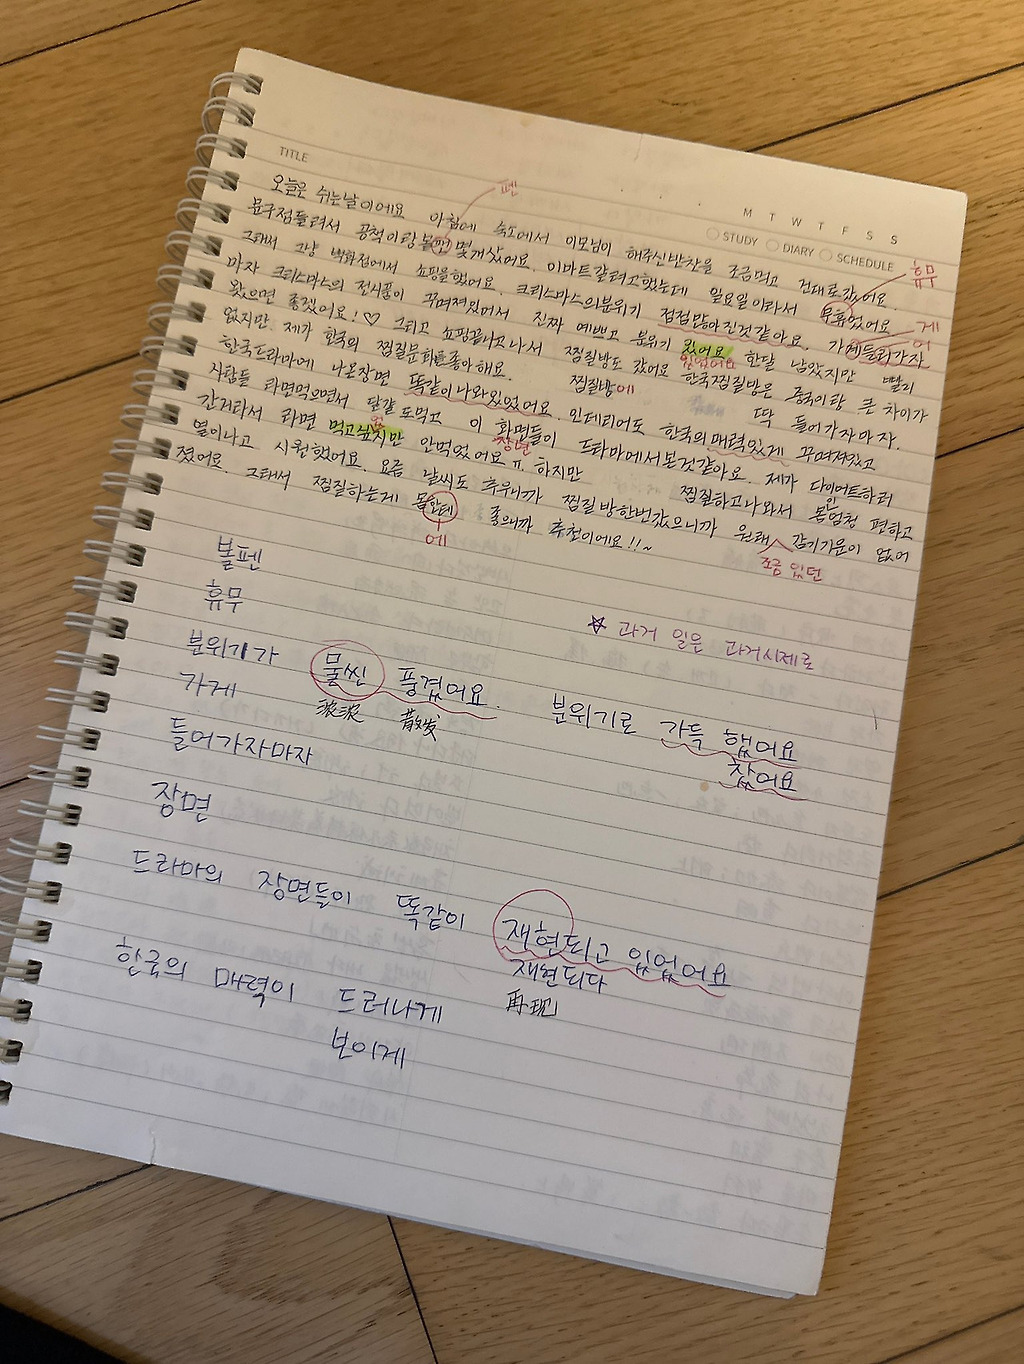 TITLE
M T W T F S S
STUDY DIARY SCHEDULE
펜
휴무
오늘은 쉬는날이에요 아침에 숙소에서 이모님이 해주신반찬을 조금먹고 건대로갔어요.
문구점들려서 공책이랑볼펜 몇개샀어요. 이마트갈려고했는데 일요일이라서 였어요
그래서 그냥 백화점에서 쇼핑을했어요. 크리스마스의분위기 점점많아진것같아요. 가게들리가자
게
어
마자 크리스마스의 전시품이 꾸며져있어서 진짜 예쁘고 분위기 있어요 한달 남았지만 빨리
있었어요
왔으면 좋겠어요!♡ 그리고 쇼핑끝나고나서 찜질방도 갔어요 한국찜질방은 중국이랑 큰 차이가
없지만 제가 한국의 찜질문화를좋아해요. 찜질방에 딱 들어가자마자.
한국드라마에 나온장면 똑같이나와있었어요. 인테리어도 한국의매력있게 꾸며져있고
사람들 라면먹으면서 달걀도먹고 이 화면들이 드라마에서본것같아요. 제가 다이어트하러
장면
간거라서 라면 먹고싶지만 안먹었어요ㅠ 하지만 찜질하고나와서 몸엄청 편하고
열이나고 시원했어요. 요즘 날씨도 추우니까 찜질방한번갔으니까 원래 감기기운이 없어
조금 있던
졌어요. 그래서 찜질하는게 몸한테 좋으니까 추천이에요!!~
에
볼펜
휴무
☆ 과거 일은 과거시제로
분위기가 물씬 풍겼어요. 분위기로 가득 했어요
滚滚 散发 찼어요
가게
들어가자마자
장면
드라마의 장면들이 똑같이 재현되고 있었어요
재현되다
再现
한국의 매력이 드러나게
보이게